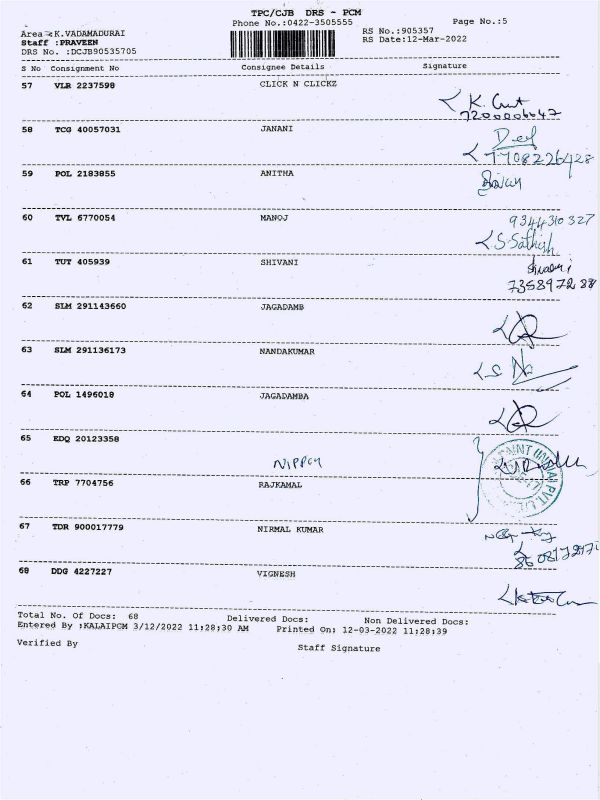 TPC/CJB DRS - PCM
Phone No.:0422-3505555 Page No.:5
Area :K.VADAMADURAI RS No.:905357
Staff :PRAVEEN RS Date:12-Mar-2022
DRS No. :DCJB90535705
S No Consignment No Consignee Details Signature
57 VLR 2237598 CLICK N CLICKZ
7200006647
58 TCG 40057031 JANANI
7708226428
59 POL 2183855 ANITHA
60 TVL 6770054 MANOJ 9344310327
S.Sathish
61 TUT 405939 SHIVANI Shivani
7358997288
62 SLM 291143660 JAGADAMB
63 SLM 291136173 NANDAKUMAR
64 POL 1496018 JAGADAMBA
65 EDQ 20123358
NIPPON
66 TRP 7704756 RAJKAMAL
67 TDR 900017779 NIRMAL KUMAR
68 DDG 4227227 VIGNESH
Total No. Of Docs: 68 Delivered Docs: Non Delivered Docs:
Entered By :KALAIPCM 3/12/2022 11:28:30 AM Printed On: 12-03-2022 11:28:39
Verified By Staff Signature